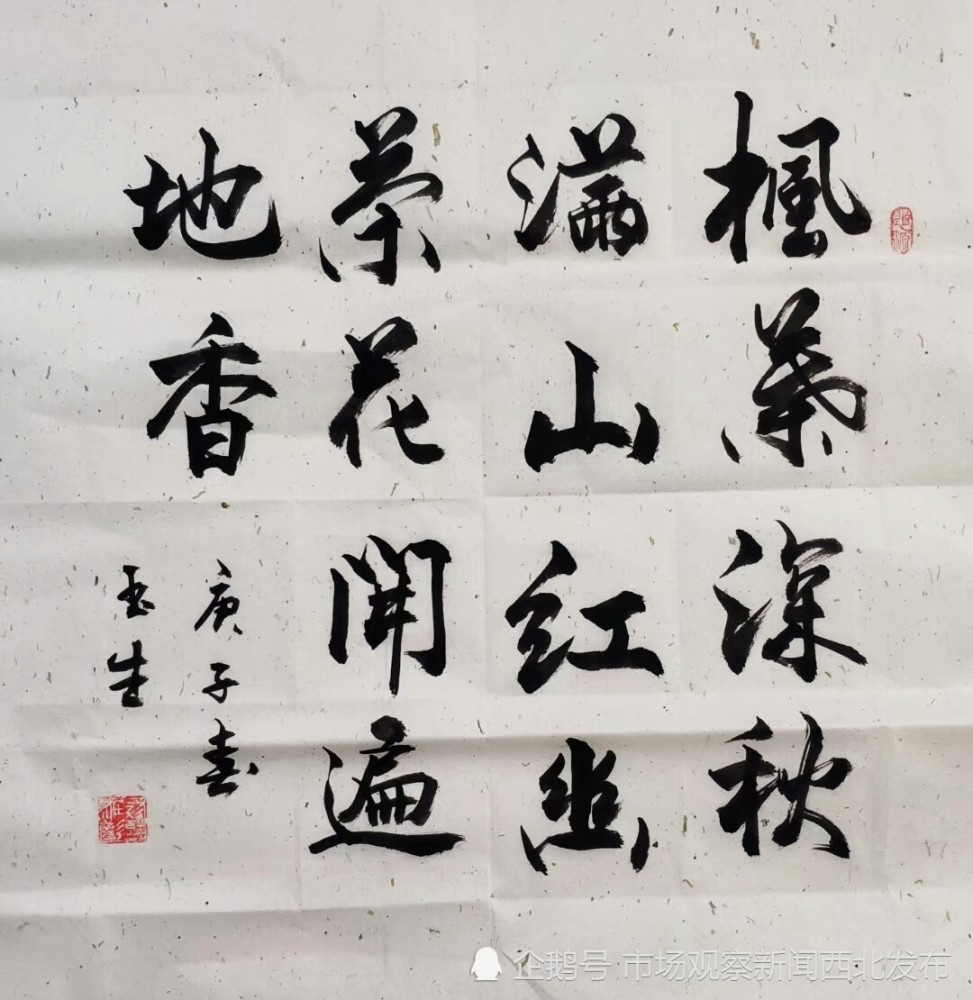 楓葉深秋
滿山红幽
茶花開遍
地香
庚子春
玉生
企鹅号 市场观察新闻西北发布